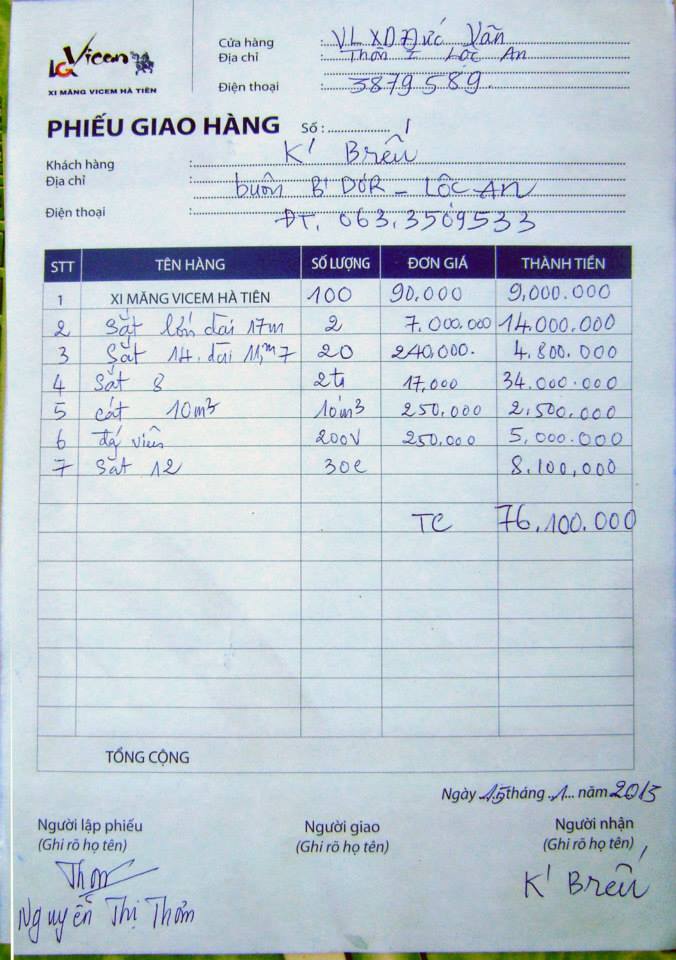 Vicem
XI MĂNG VICEM HÀ TIÊN
Cửa hàng : VLXD Đức Vân
Địa chỉ : Thôn I Lộc An
Điện thoại : 3879589.
PHIẾU GIAO HÀNG Số : 1
Khách hàng : K' Brếu
Địa chỉ : buôn B' DƠR - LỘC AN
Điện thoại : ĐT. 063.3509533
STT TÊN HÀNG SỐ LƯỢNG ĐƠN GIÁ THÀNH TIỀN
1 XI MĂNG VICEM HÀ TIÊN 100 90.000 9,000.000
2 Sắt lớn dài 17m 2 7.000.000 14.000.000
3 Sắt 14. dài 11,m7 20 240,000. 4.800.000
4 Sắt 8 2tạ 17,000 34.000.000
5 cát 10m3 10m3 250,000 2,500,000
6 đá viên 200V 250,000 5,000.000
7 Sắt 12 30c 8,100,000
TC 76.100.000
TỔNG CỘNG
Ngày 15 tháng 1 năm 2013
Người lập phiếu Người giao Người nhận
(Ghi rõ họ tên) (Ghi rõ họ tên) (Ghi rõ họ tên)
Thơm K' Brếu
Nguyễn Thị Thơm